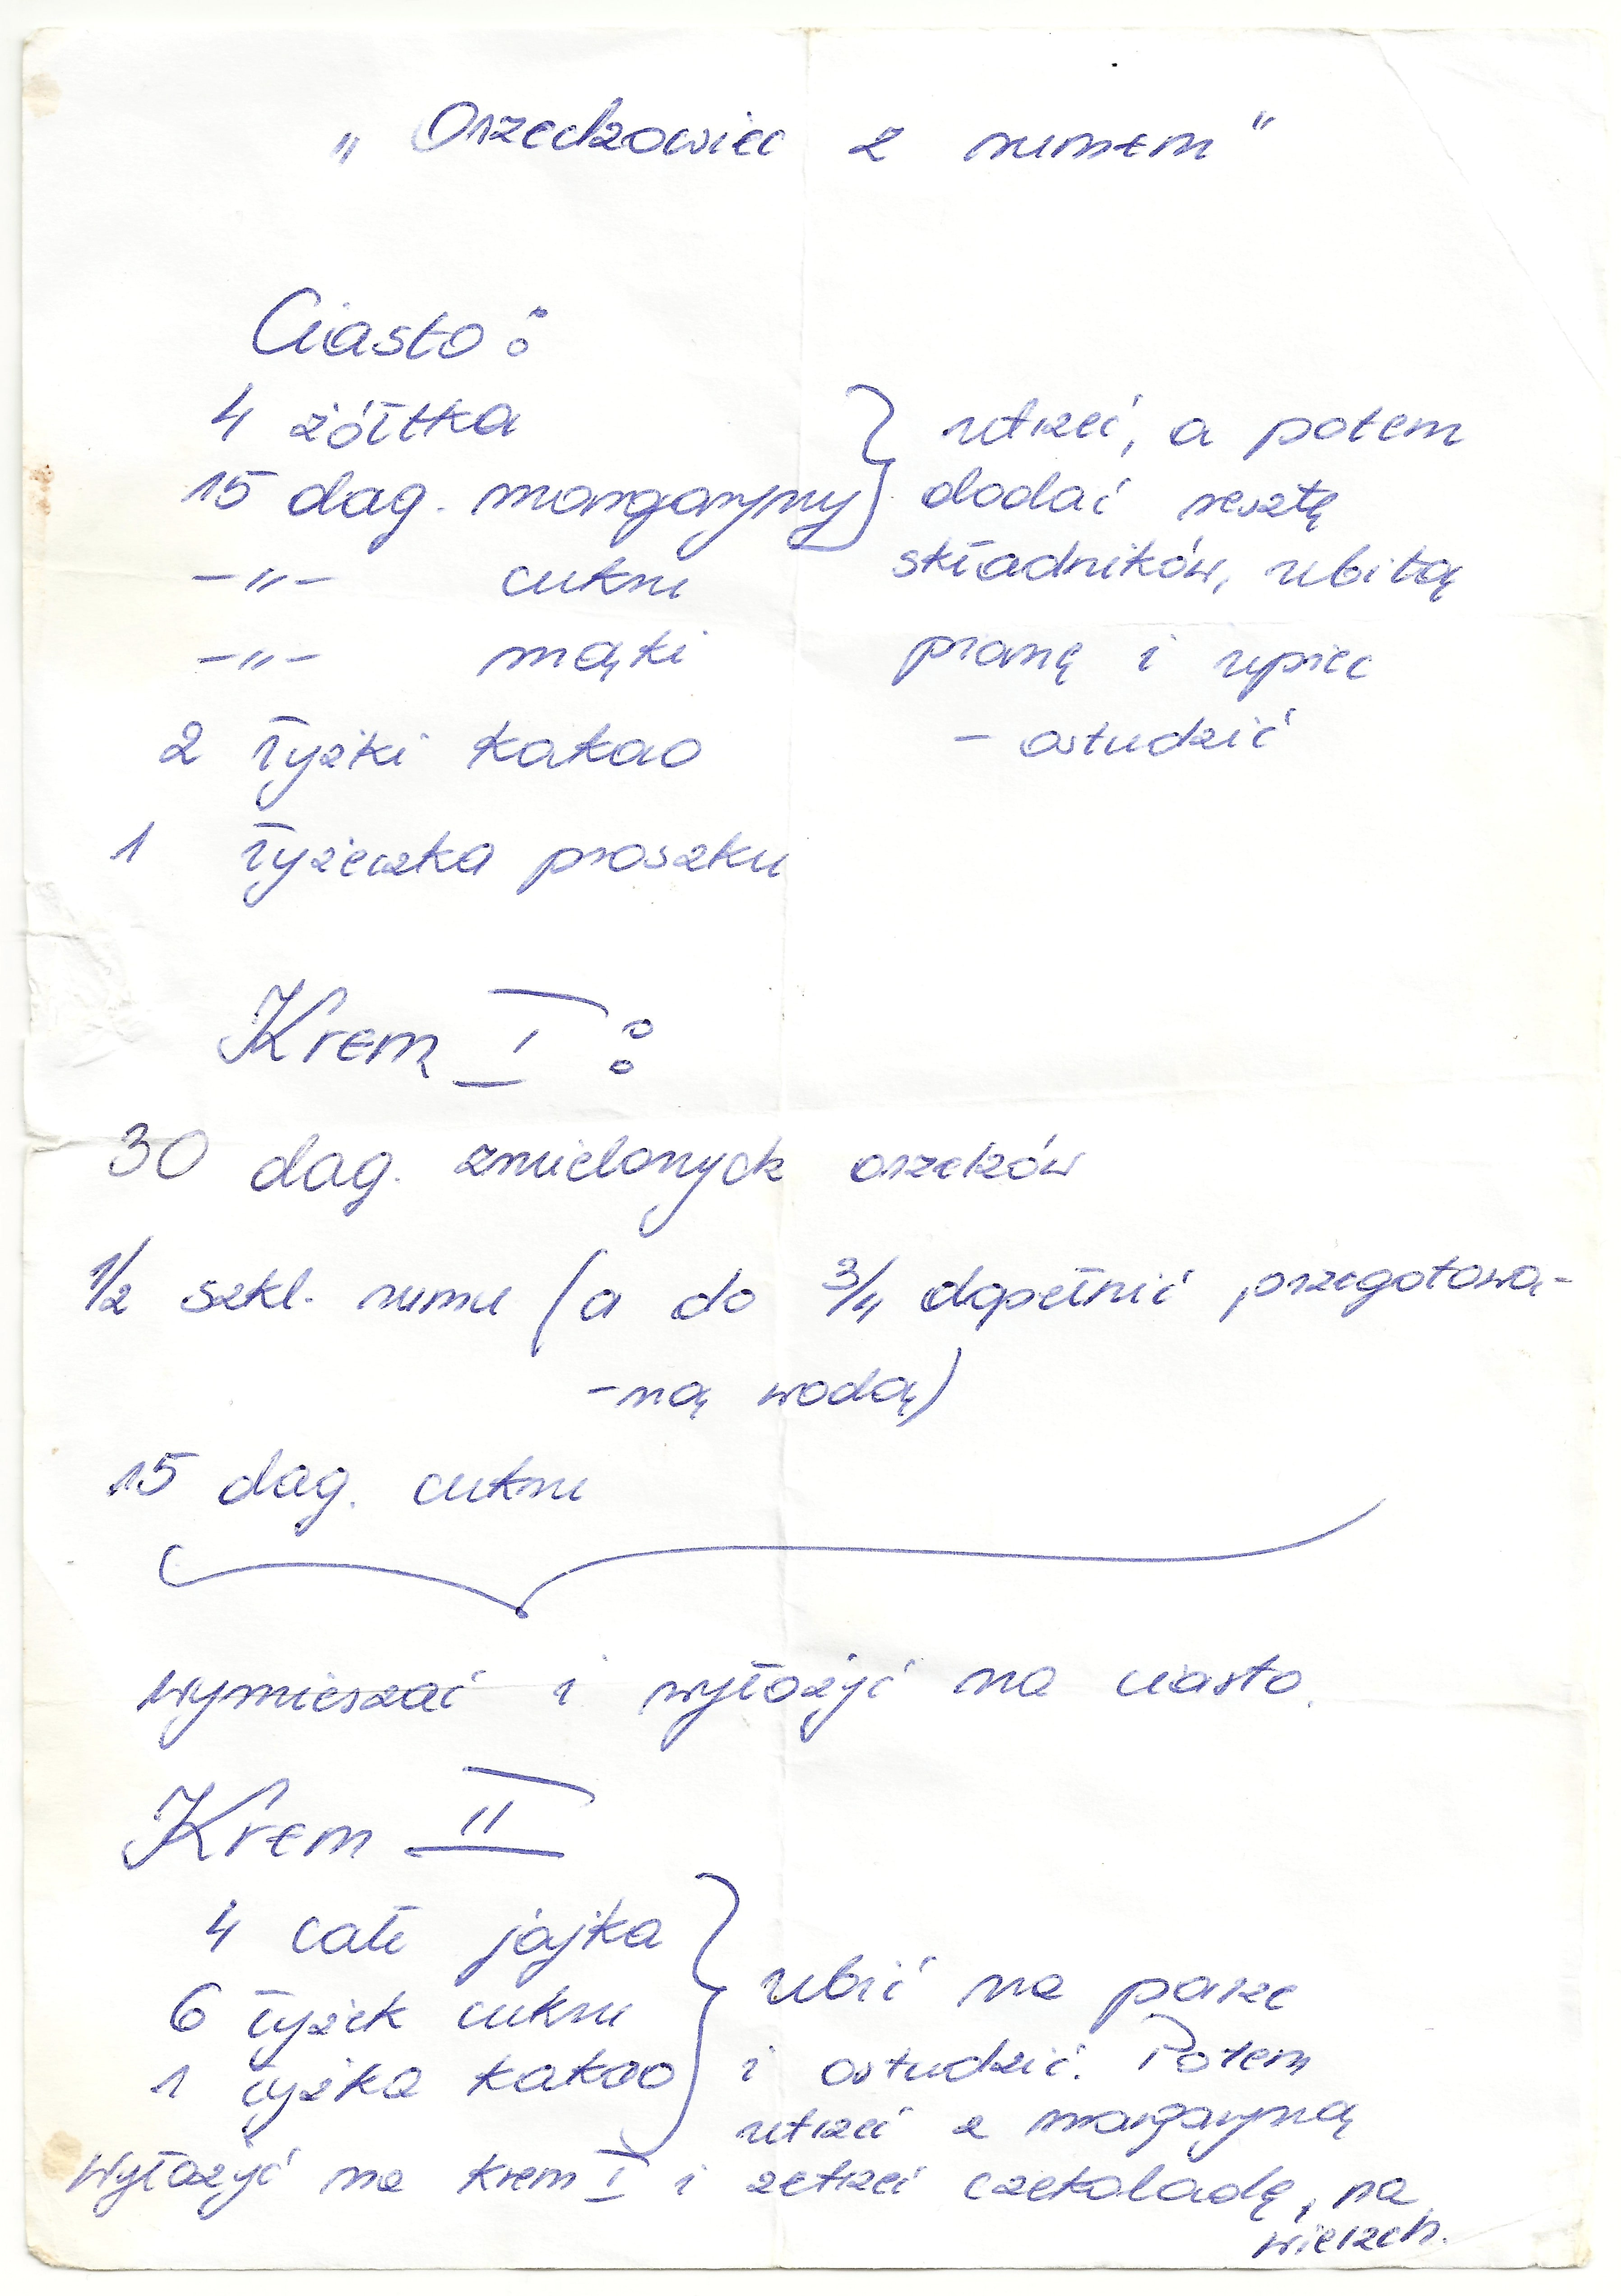 „Orzechowiec z rumem"
Ciasto:
4 żółtka
15 dag. margaryny
-„- cukru
-„- mąki
2 łyżki kakao
1 łyżeczka proszku
utrzeć, a potem
dodać resztę
składników, ubitą
pianę i upiec
- ostudzić
Krem I:
30 dag. zmielonych orzechów
1/2 szkl. rumu (a do 3/4 dopełnić przegotowa-
-ną wodą)
15 dag. cukru
wymieszać i wyłożyć na ciasto.
Krem II
4 całe jajka
6 łyżek cukru
1 łyżka kakao
ubić na parze
i ostudzić. Potem
utrzeć z margaryną
Wyłożyć na krem I i zetrzeć czekoladę, na
wierzch.